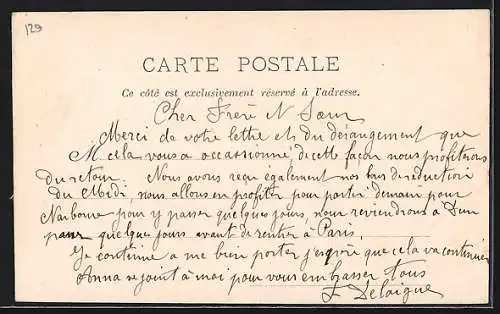 129
CARTE POSTALE
Ce côté est exclusivement réservé à l'adresse.
Cher Frère Sœur
Merci de votre lettre et du dérangement que
cela vous a occasionné, de cette façon nous profiterons
du retour. Nous avons reçu également nos de réduction
du Midi, nous allons en profiter pour partir demain pour
Narbonne pour y passer quelques jours, nous reviendrons à
passer quelques jours avant de rentrer à Paris.
Je continue a me bien porter j'espère que cela va continuer
Anna se joint à moi pour vous embrasser tous
Delaigue